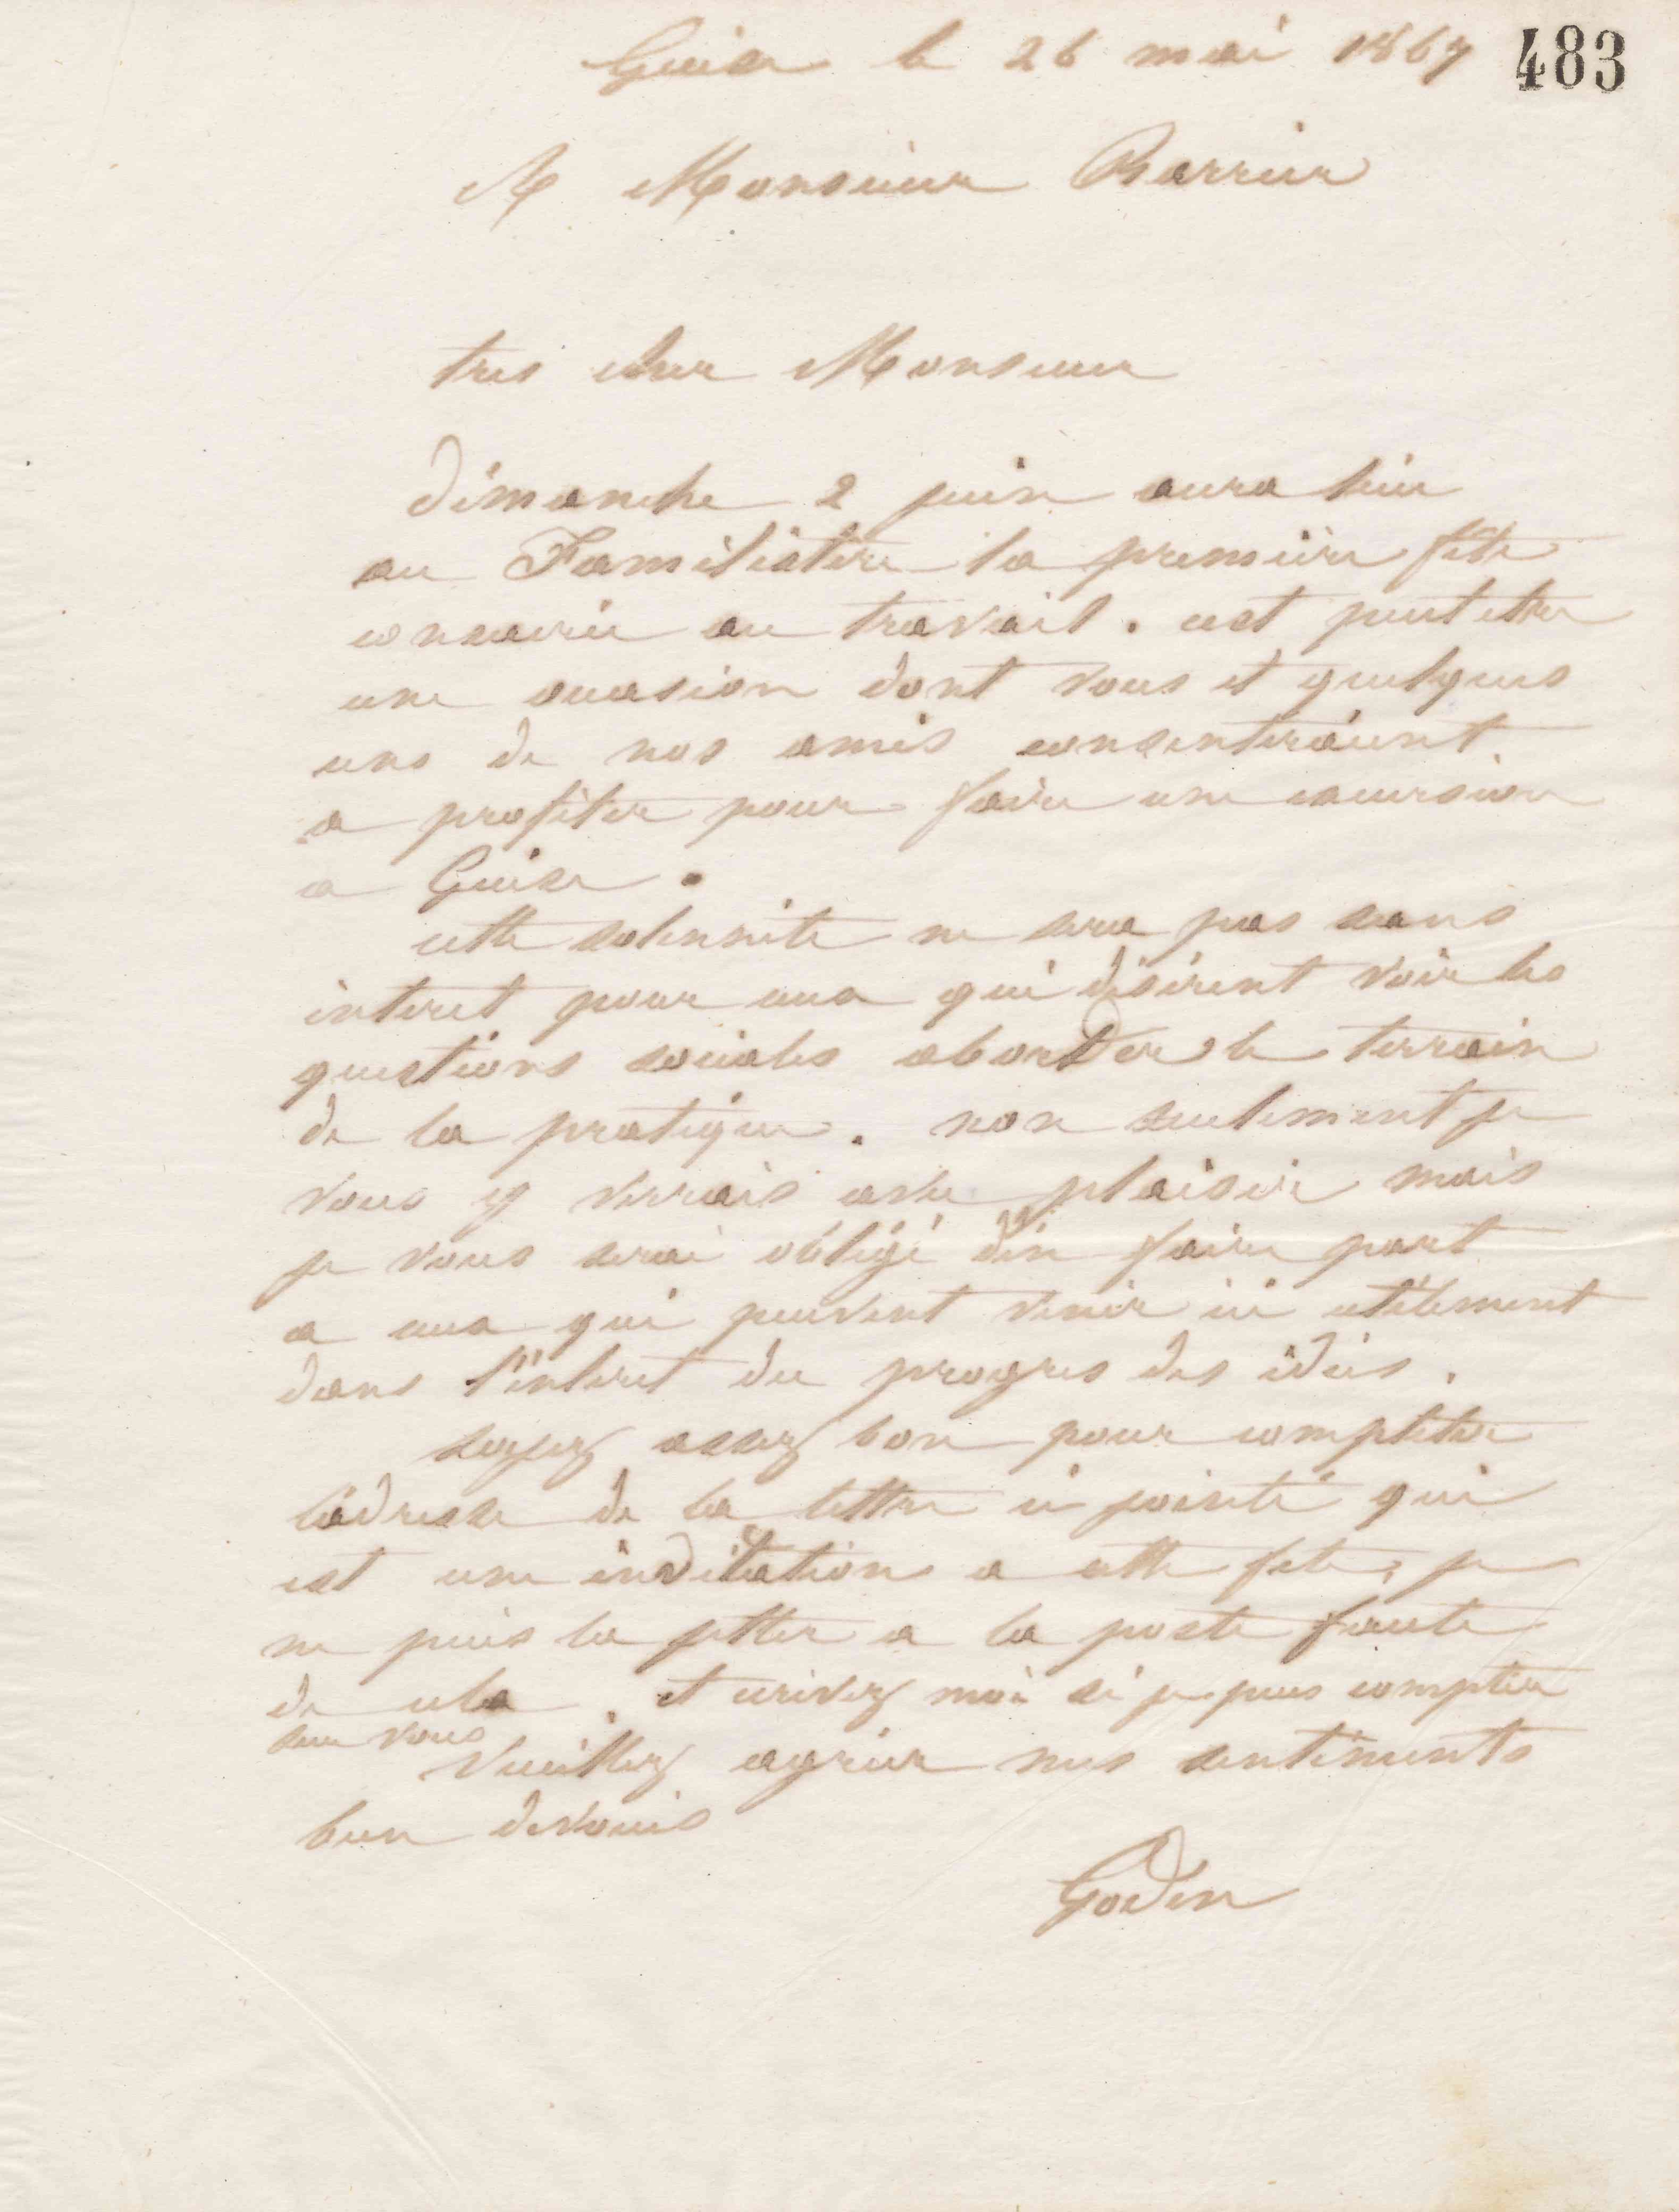 Guise le 26 mai 1867 483
A Monsieur Barrier
tres cher Monsieur
Dimanche 2 juin aura lieu
au Familistère la première fête
consacrée au travail. cest peut etre
une occasion dont vous et quelques
uns de nos amis consentiraient
a profiter pour faire une excursion
a Guise.
cette solennité ne sera pas sans
interet pour ceux qui désirent voir les
questions sociales aborder le terrain
de la pratique. non seulement je
vous y verrais avec plaisir mais
je vous serai obligé d'en faire part
a ceux qui peuvent venir ici utilement
dans l'intéret du progres des idées.
soyez assez bon pour completer
l'adresse de la lettre ci jointe qui
est une invitation a cette fete, je
ne puis la jetter a la poste faute
de cela. et ecrivez moi si je puis compter
sur vous
Veuillez agréer mes sentiments
bien devoués
Godin